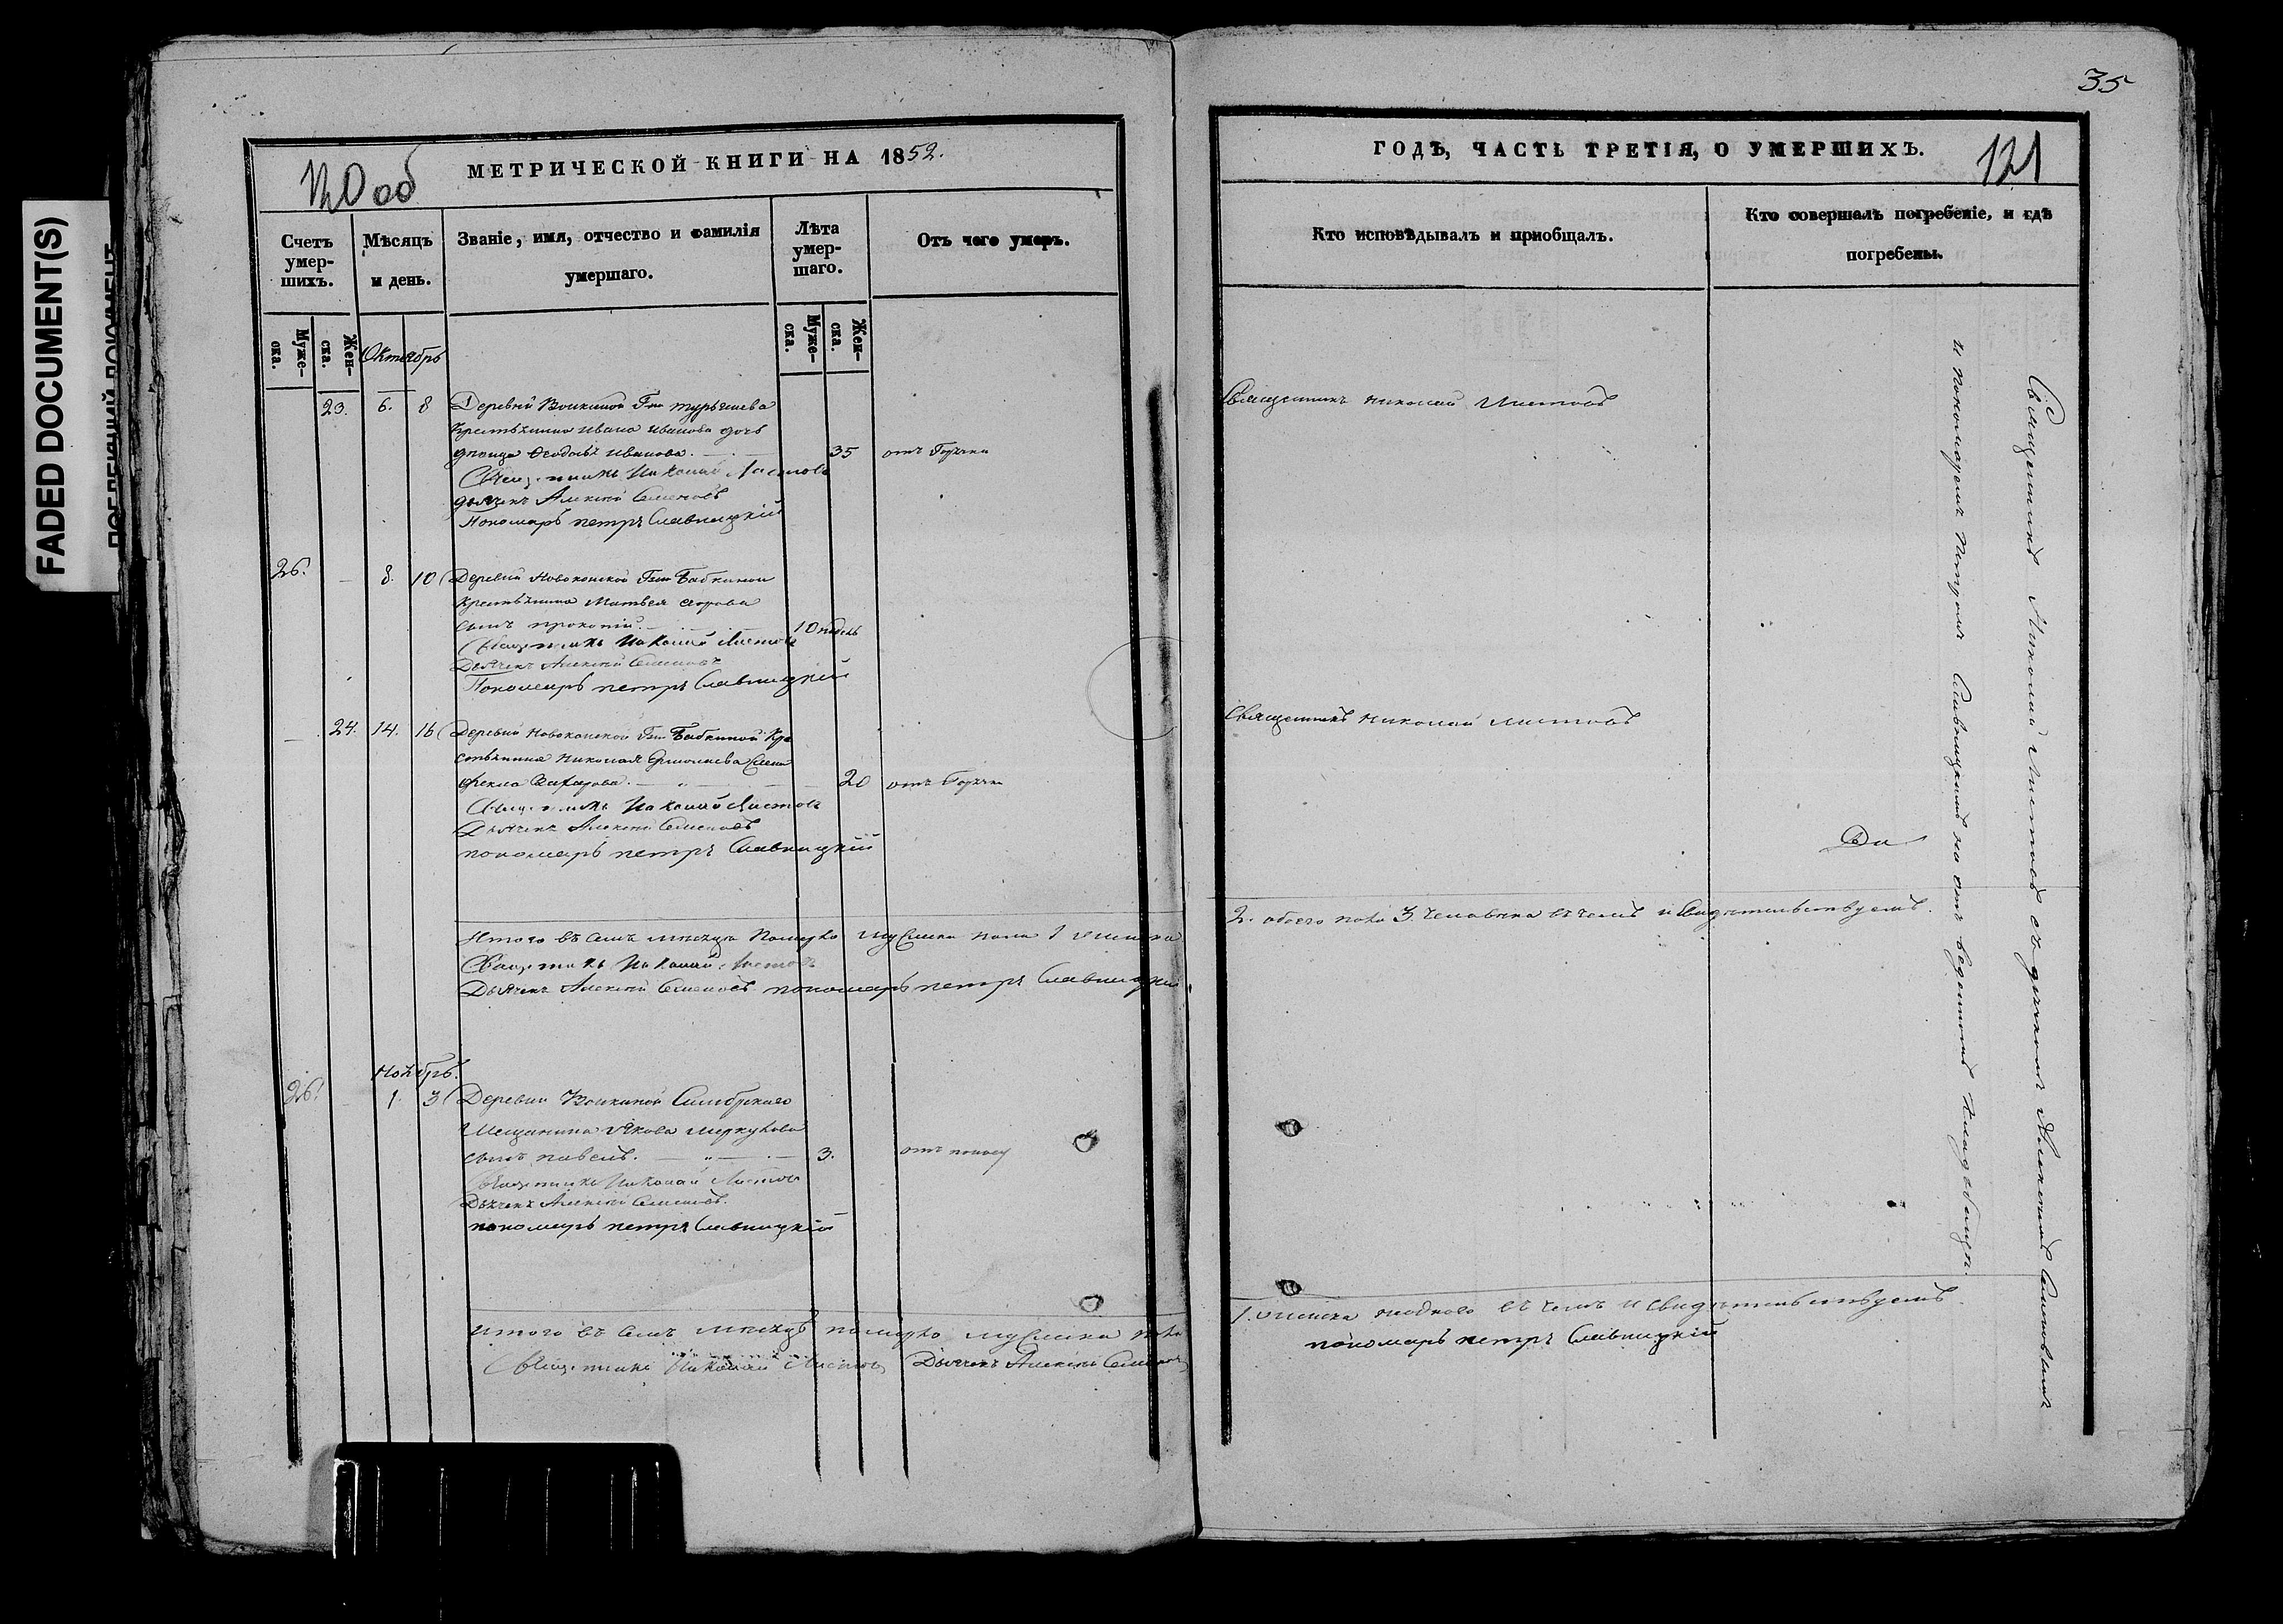 FADED DOCUMENT(S)
35
120 об
МЕТРИЧЕСКОЙ КНИГИ НА 1852.
Счетъ умер-
шихъ.
Мѣсяцъ
и день.
Званіе, имя, отчество и фамилія
умершаго.
Лѣта
умер-
шаго.
Отъ чего умеръ.
Муже-
ска.
Жен-
ска.
Октябрь
Муже-
ска.
Жен-
ска.
23. 6. 8 Деревни Воикиной Гжи
крестьянина Ивана Иванова дочь
девица Ѳеодосья Иванова. 35 отъ Горячки
Священникъ Николай Листовъ
Дьячекъ Алексѣй Семеновъ
Пономарь петръ Славницкій
26. 8. 10 Деревни Гжи Бабкиной
крестьянина Матвея
сынъ прокопій. 10 недѣль
Священникъ Николай Листовъ
Дьячекъ Алексѣй Семеновъ
Пономарь петръ Славницкій
24. 14. 16 Деревни Гжи Бабкиной Кре
стьянина Николая Ермолаева жена
Ѳекла 20 отъ Горячки
Священникъ Николай Листовъ
Дьячекъ Алексѣй Семеновъ
пономарь петръ Славницкій
Итого въ семъ мѣсяцѣ Померло мужеска пола 1 женска
Священникъ Николай Листовъ
Дьячекъ Алексѣй Семеновъ пономарь петръ Славницкій
Ноябрь.
26. 1. 3 Деревни Воикиной Симбрскаго
Мещанина Якова Меркулова
сынъ павелъ. 3. отъ поносу
Священникъ Николай Листовъ
Дьячекъ Алексѣй Семеновъ.
пономарь петръ Славницкій
Итого въ семъ мѣсяцѣ померло мужеска пола
Священникъ Николай Листовъ Дьячекъ Алексѣй Семеновъ
ГОДЪ, ЧАСТЬ ТРЕТІЯ, О УМЕРШИХЪ.
121
Кто исповѣдывалъ и пріобщалъ.
Кто совершалъ погребеніе, и гдѣ
погребены.
Священникъ Николай Листовъ
Священникъ Николай Листовъ
2. обоего пола 3. человѣка въ чемъ и Свидѣтельствуемъ.
1. женска ниодного въ чемъ и свидѣтельствуемъ
пономарь петръ Славницкій
Священникъ Николай Листовъ съ дьячкомъ Алексѣемъ Семеновымъ
и Пономаремъ Петромъ Славницкимъ на отведенномъ Кладбищѣ.